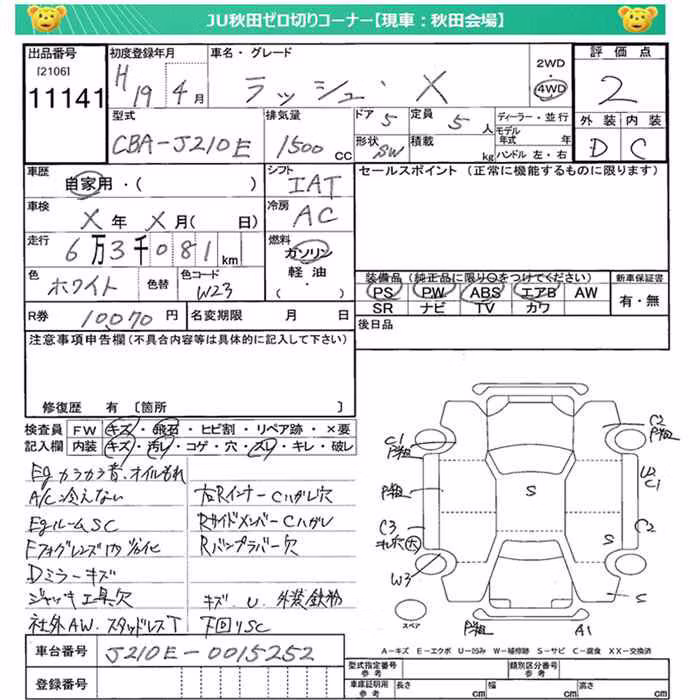 JU秋田ゼロ切りコーナー【現車：秋田会場】
出品番号
[2106]
11141
初度登録年月
H19 4月
車名・グレード
ラッシュ・X
2WD
4WD
評価点
2
外装 内装
D C
型式
CBA-J210E
排気量
1500 cc
ドア 5
定員 5 人
形状 SW
積載 kg
ディーラー・並行
モデル年式 年
ハンドル 左・右
車歴
自家用・( )
シフト
IAT
セールスポイント (正常に機能するものに限ります)
車検
X 年 X 月( 日)
冷房
AC
走行
6万3千081km
燃料
ガソリン
軽油・
( )
色
ホワイト
色替
色コード
W23
装備品 (純正品に限り○をつけてください)
PS PW ABS エアB AW
SR ナビ TV カワ
新車保証書
有・無
R券 10070 円
名変期限 月 日
後日品
注意事項申告欄(不具合内容等は具体的に記入して下さい)
修復歴 有 〔箇所 〕
検査員 FW キズ・飛石・ヒビ割・リペア跡・×要
記入欄 内装 キズ・汚レ・コゲ・穴・スレ・キレ・破レ
Eg カラカラ音.オイルもれ
A/C冷えない
EgルームSC
Fフォグレンズ内劣化
Dミラーキズ
ジャッキ工具欠
社外AW.スタッドレスT
右RインナーCハガレ穴
RサイドメンバーCハガレ
Rバンプラバー欠
キズ.U.外装鉄粉
下回りSC
C1
P粗
P粗
C3
W3
スペア
P粗
A1
S
S
S
C2
P粗
C1
C2
A－キズ E－エクボ U－凹み W－補修跡 S－サビ C－腐食 XX－交換済
車台番号 J210E-0015252
登録番号
型式指定番号
参考
類別区分番号
参考
車庫証明用
参考
長さ cm
幅 cm
高さ cm